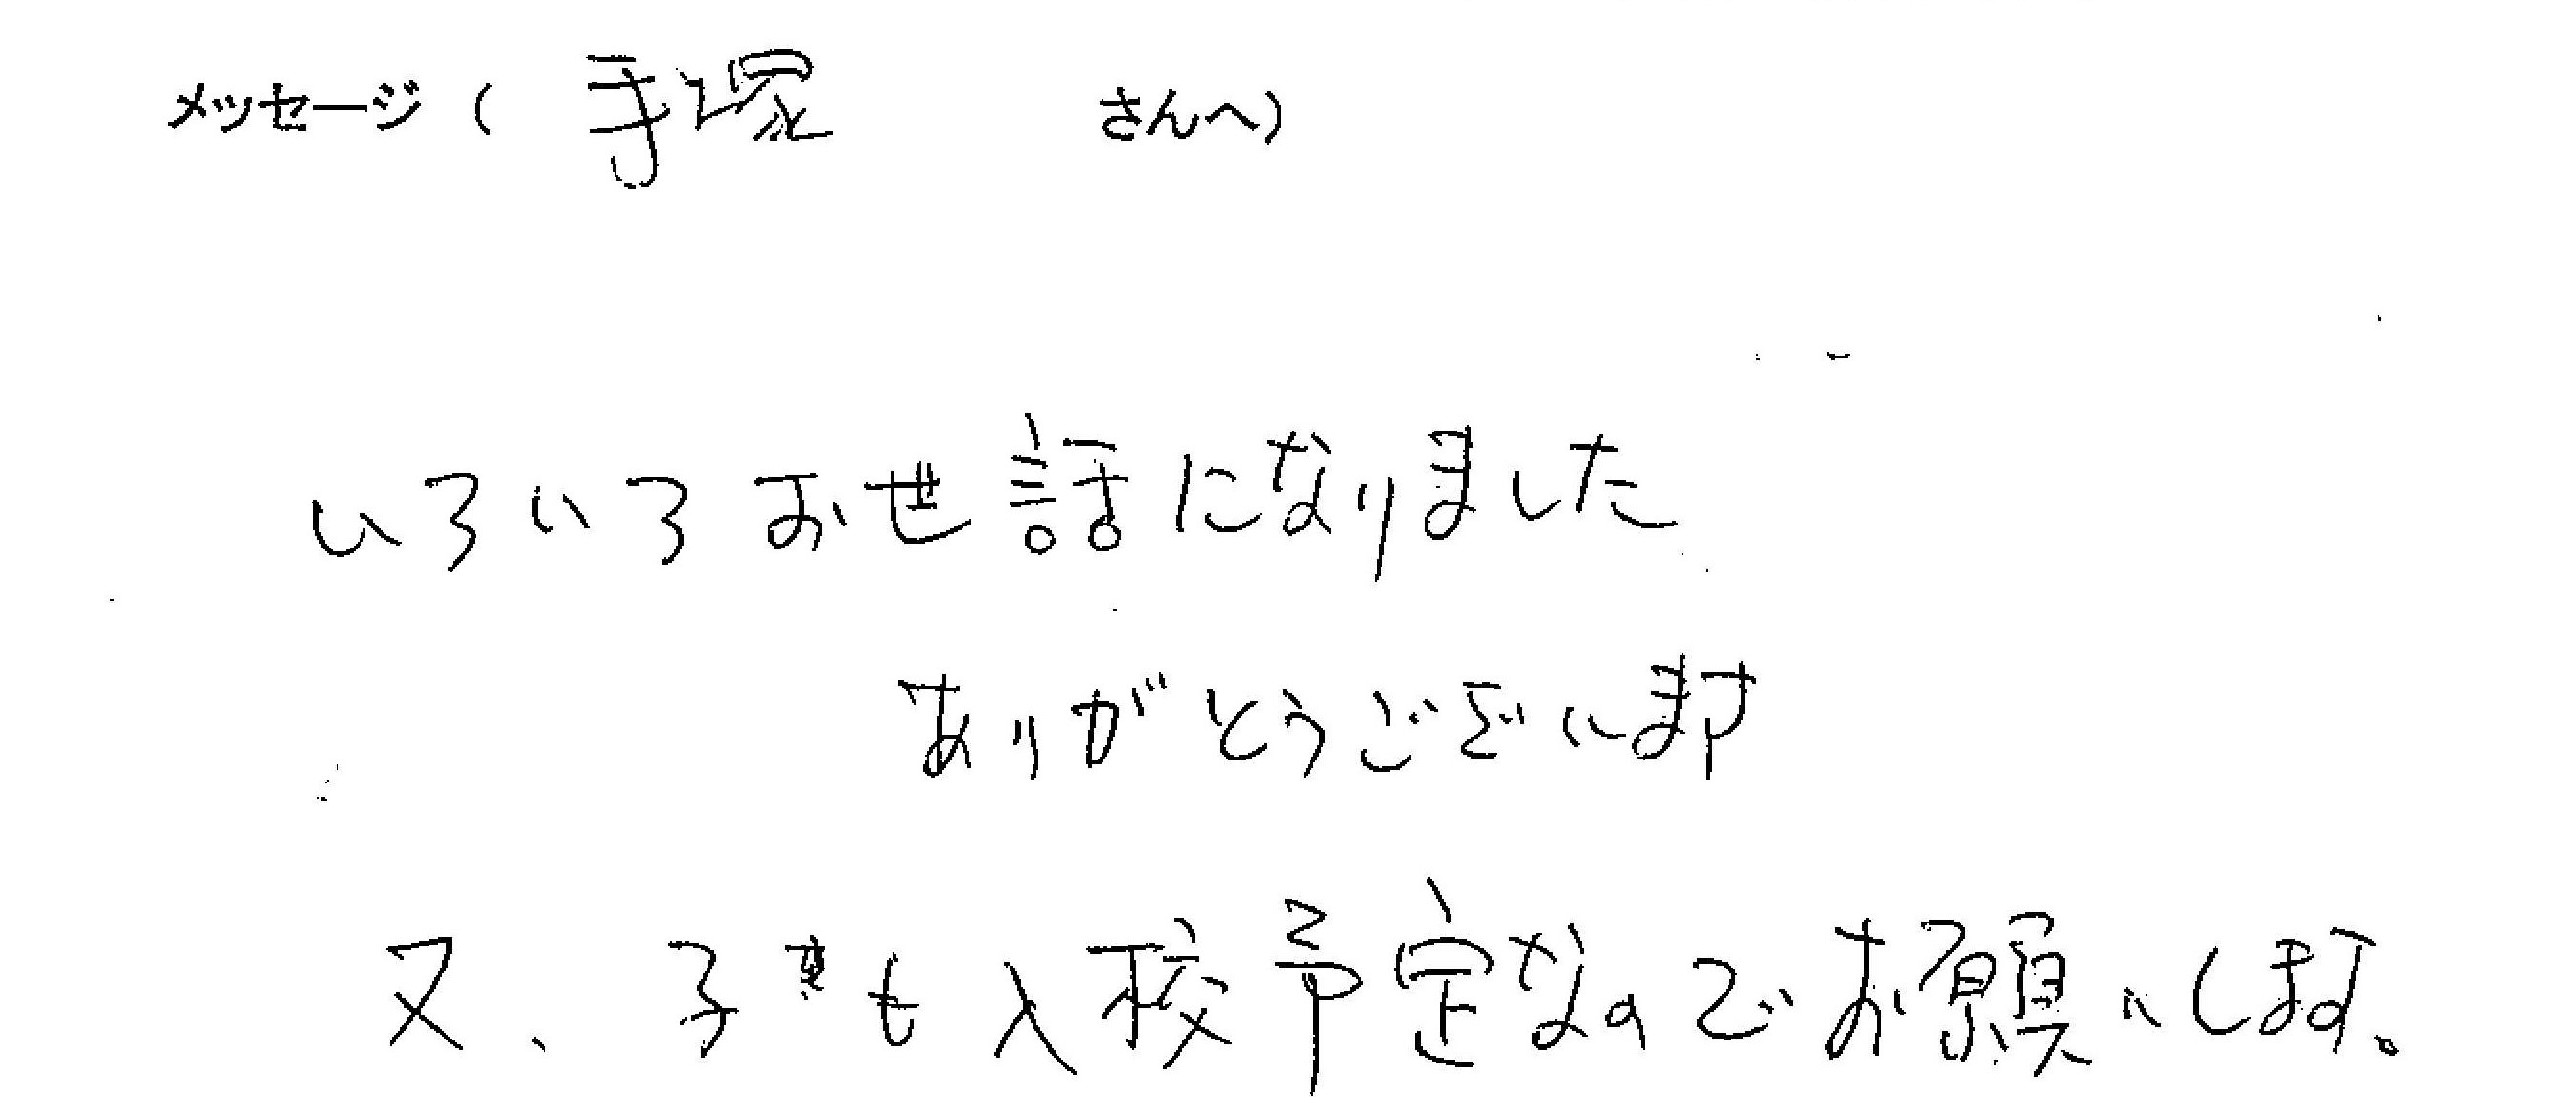 メッセージ（ 手塚 さんへ）
いろいろお世話になりました
ありがとうございます
又、子も入校予定なのでお願いします。